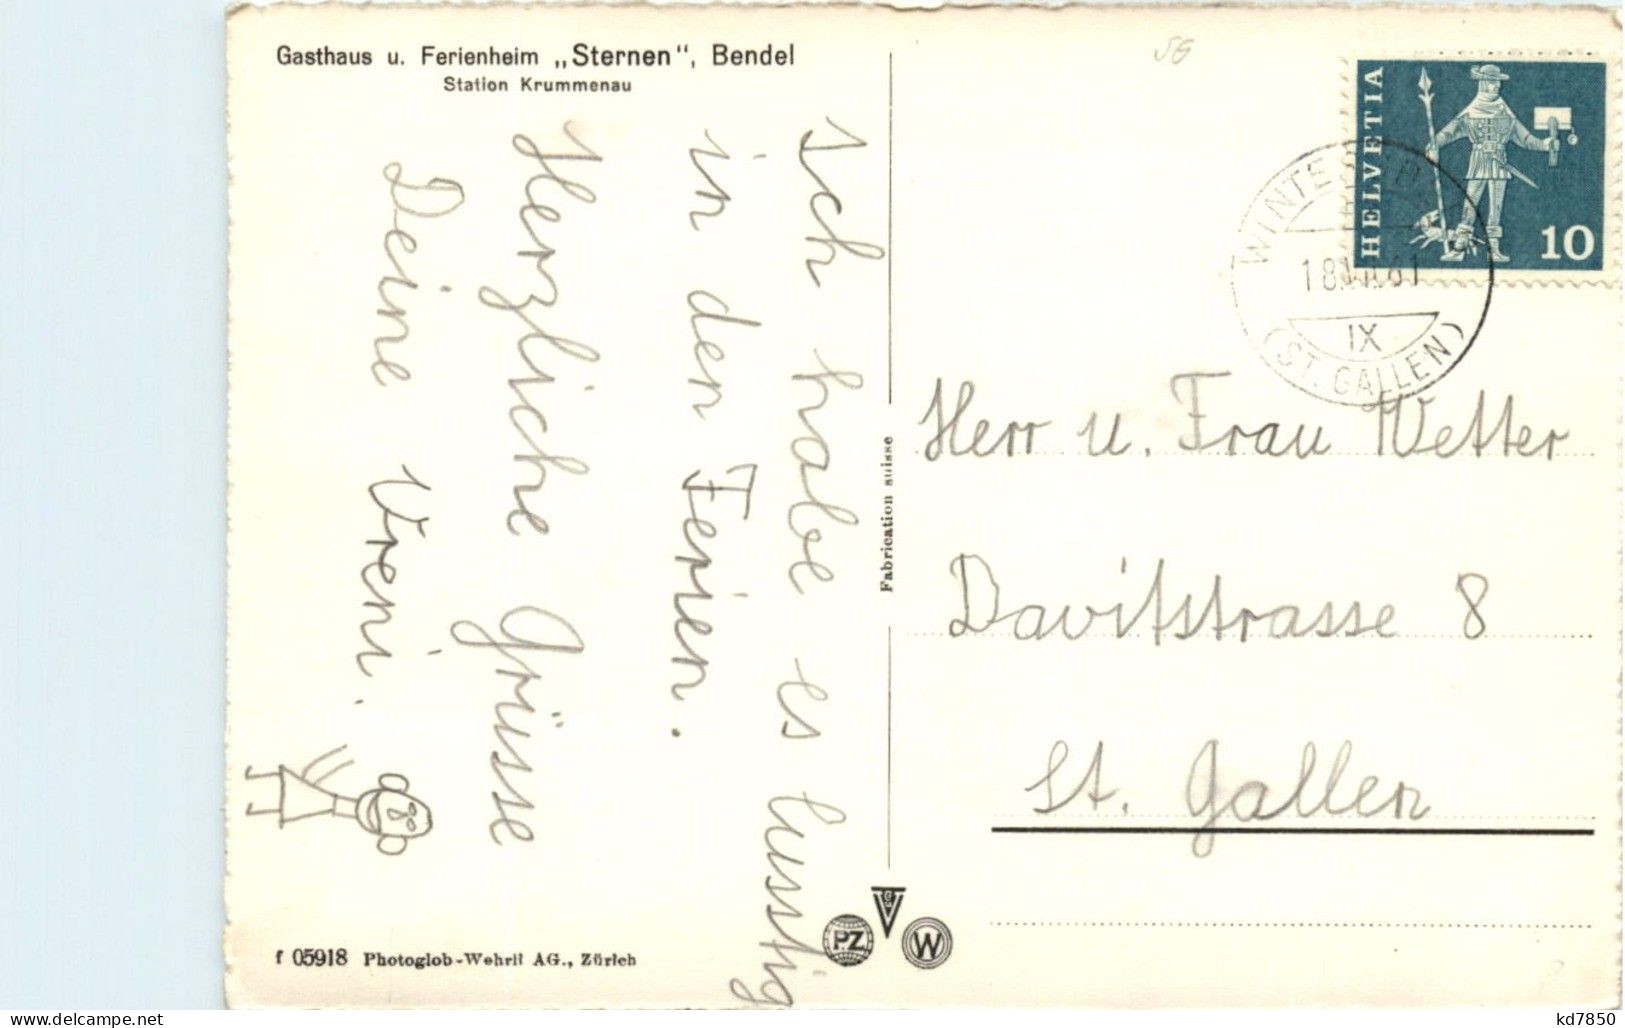 Gasthaus u. Ferienheim „Sternen", Bendel
Station Krummenau
Ich habe es lustig
in den Ferien.
Herzliche Grüsse
Deine Vreni.
f 05918 Photoglob-Wehrli AG., Zürich
Fabrication suisse
PZ
W
SG
HELVETIA
10
IX
(ST. GALLEN)
Herr u. Frau Wetter
Davitstrasse 8
St. Gallen
kd7850